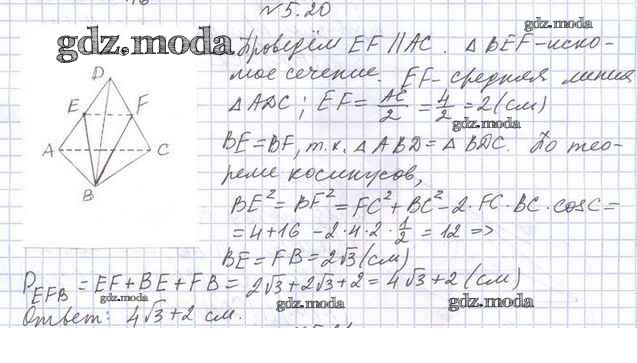 №5.20
gdz.moda
gdz.moda
Проведём EF || AC. △BEF – иско-
мое сечение. EF – средняя линия
△ADC; EF = AC/2 = 4/2 = 2 (см)
gdz.moda
BE = BF, т.к. △ABD = △BDC. По тео-
реме косинусов,
BE² = BF² = FC² + BC² – 2·FC·BC·cosC =
= 4 + 16 – 2·4·2·1/2 = 12 =>
BE = FB = 2√3 (см)
D
E F
A C
B
P_EFB = EF + BE + FB = 2√3 + 2√3 + 2 = 4√3 + 2 (см)
gdz.moda
gdz.moda
gdz.moda
Ответ: 4√3 + 2 см.